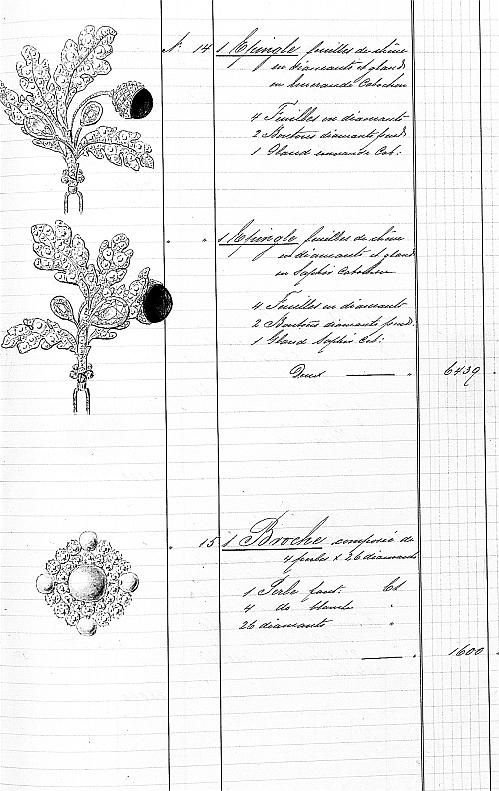 N. 14 1 Epingle feuilles de chêne
en diamants et gland
en émeraude Cabochon
4 Feuilles en diamants
2 Boutons diamants fond.
1 Gland émeraude Cab:
" " 1 Epingle feuilles de chêne
en diamants et gland
en Saphir Cabochon
4 Feuilles en diamants
2 Boutons diamants fond.
1 Gland Saphir Cab:
Deux — " 6439
" 15 1 Broche composée de
4 perles & 26 diamants
1 Perle fant. Ct
4 do blanche "
26 diamants "
— " 1600